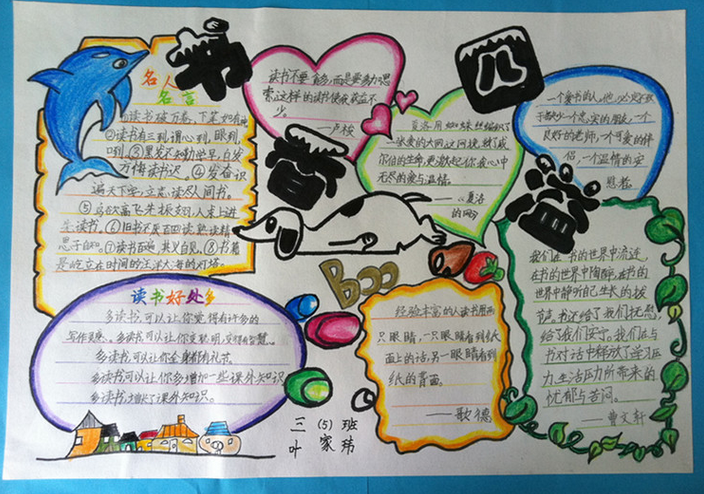 书
香
四
溢
名人
名言
①读书破万卷,下笔如有神
②读书有三到,谓心到,眼到,
口到。③黑发不知勤学早,白发
方悔读书迟。④发奋识
遍天下字,立志读尽人间书。
⑤鸟欲高飞先振翅,人求上进
先读书。⑥旧书不厌百回读,熟读精
思子自知。⑦读书百遍,其义自见。⑧书籍
是屹立在时间的汪洋大海的灯塔。
读书不要贪多,而是要多加思
索,这样的读书使我获益不
少。
——卢梭
夏洛用蜘蛛丝编织了
一张爱的大网,这网挽救了威
尔伯的生命,更激起你我心中
无尽的爱与温情。
——《夏洛
的网》
一个爱书的人,他必定不致
于缺少一个忠实的朋友,一个
良好的老师,一个可爱的伴
侣,一个温情的安
慰者。
Boo
读书好处多
多读书,可以让你觉得有许多的
写作灵感。多读书,可以让你变聪明,变得有智慧。
多读书,可以让你全身都有礼节。
多读书,可以让你多增加一些课外知识
多读书,增长了课外知识。
经验丰富的人读书用两
只眼睛,一只眼睛看到纸
面上的话,另一眼睛看到
纸的背面。
——歌德
我们在书的世界中流连,
在书的世界中陶醉,在书的
世界中静听自己生长的拔
节声。书还给了我们抚慰,
给了我们安宁。我们在与
书对话中释放了学习压
力,生活压力所带来的
忧郁与苦闷。
——曹文轩
三(5)班
叶家玮